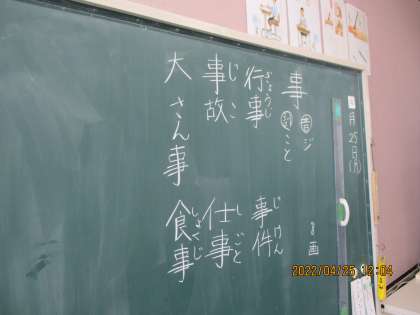 月25日(月)
事
音 ジ
訓 こと
8画
行事 ぎょうじ
事件 じけん
事故 じこ
仕事 しごと
大さん事
食事 しょくじ
2022/04/25 12:04